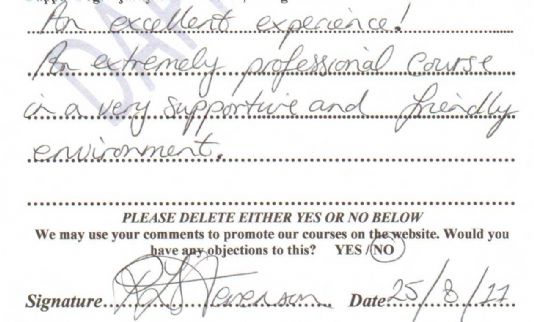 An excellent experience!
An extremely professional course
in a very supportive and friendly
environment.
PLEASE DELETE EITHER YES OR NO BELOW
We may use your comments to promote our courses on the website. Would you
have any objections to this? YES / NO
Signature Date 25/8/11